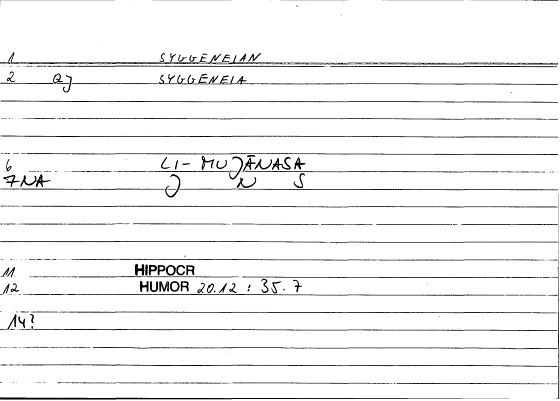 1 SYGGENEIAN
2 QJ SYGGENEIA
6 LI- MUJĀNASA
7 NA J N S
11 HIPPOCR
12 HUMOR 20.12 : 35.7
14?